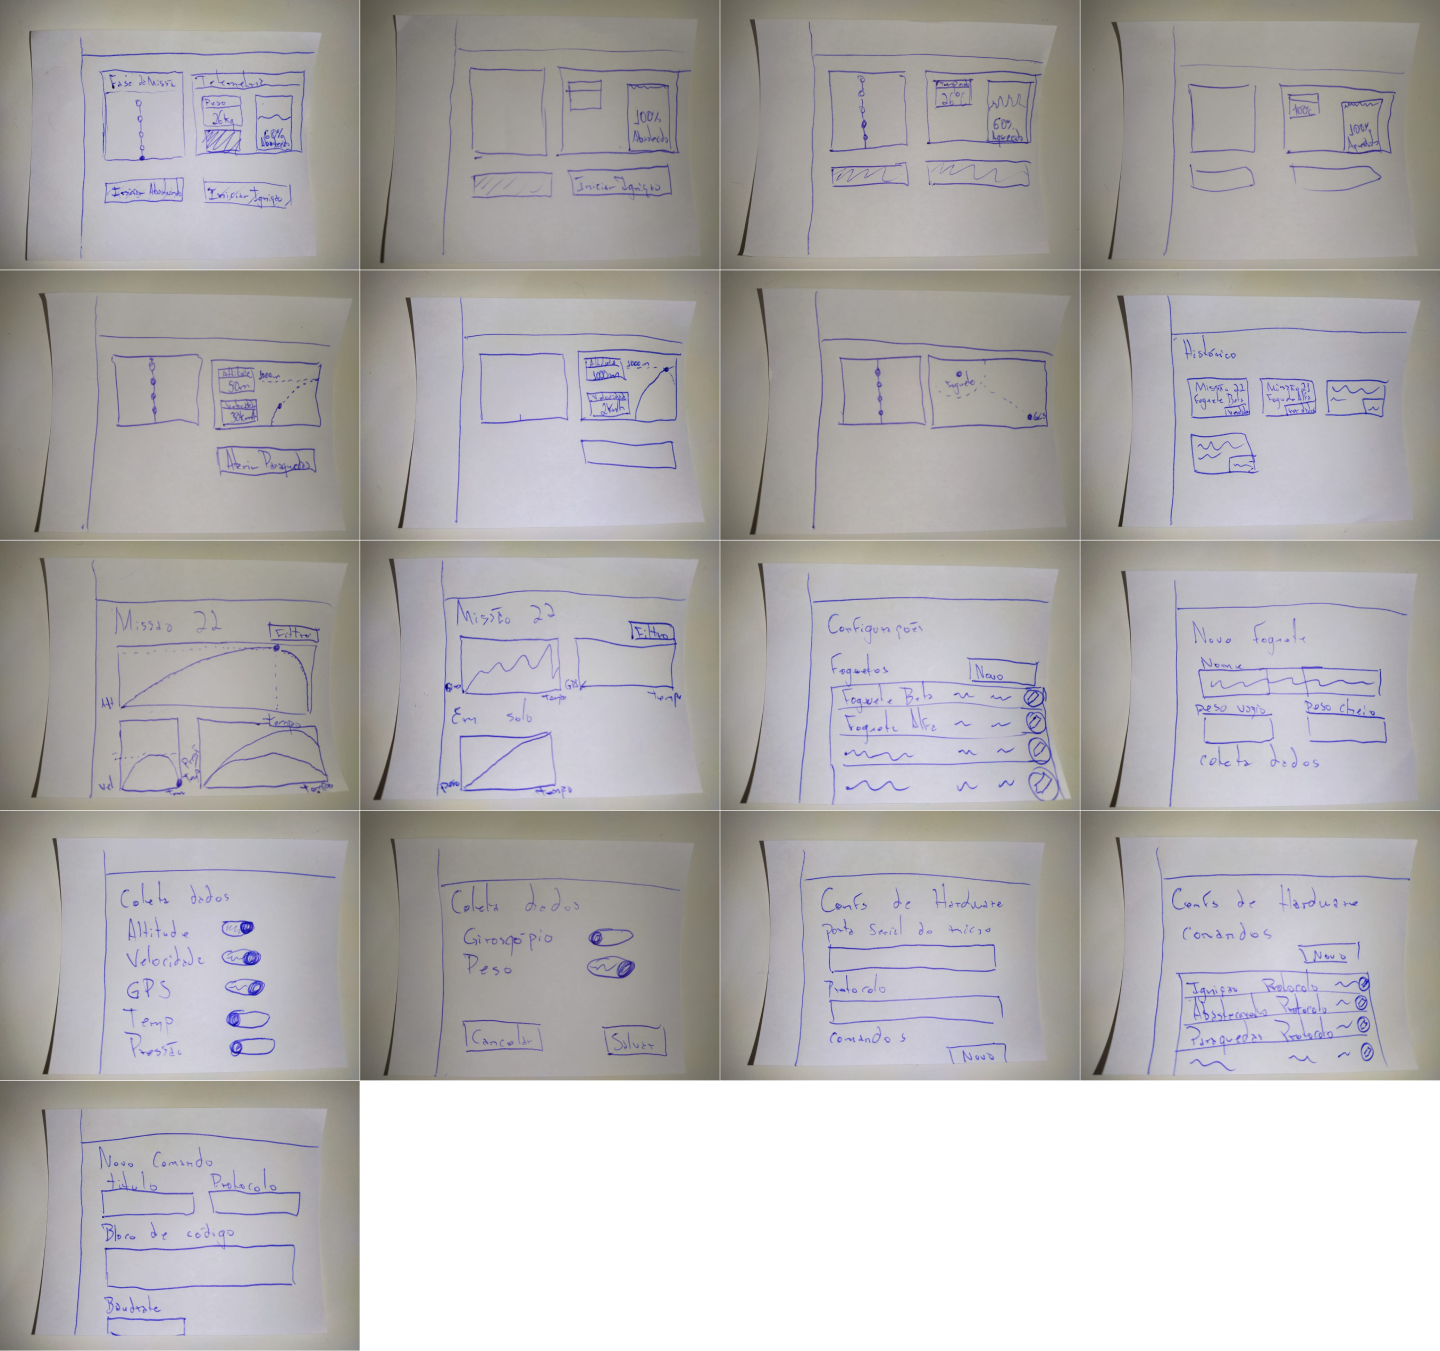 Fase da Missão
Telemetria
Peso
26kg
60%
Abastecido
Iniciar Abastecimento
Iniciar Ignição
100%
Abastecido
Iniciar Ignição
26°C
60%
Aquecido
100%
100%
Aquecido
Altitude
50m
1000m
Velocidade
30km/h
Abrir Paraquedas
Altitude
1000m
1000m
Velocidade
2km/h
Foguete
Histórico
Missão 22
Foguete Beta
Ver dados
Missão 21
Foguete Alfa
Ver dados
Missão 22
Filtro
Alt
tempo
Vel
tempo
Missão 22
Filtro
tempo
GPS
tempo
Em solo
peso
tempo
Configurações
Foguetes
Novo
Foguete Beta
Foguete Alfa
Novo Foguete
Nome
peso vazio
peso cheio
coleta dados
Coleta dados
Altitude
Velocidade
GPS
Temp
Pressão
Coleta dados
Giroscópio
Peso
Cancelar
Salvar
Confs de Hardware
porta serial do micro
Protocolo
comandos
Novo
Confs de Hardware
comandos
Novo
Ignição Protocolo
Abastecendo Protocolo
Paraquedas Protocolo
Novo Comando
titulo
Protocolo
Bloco de código
Baudrate